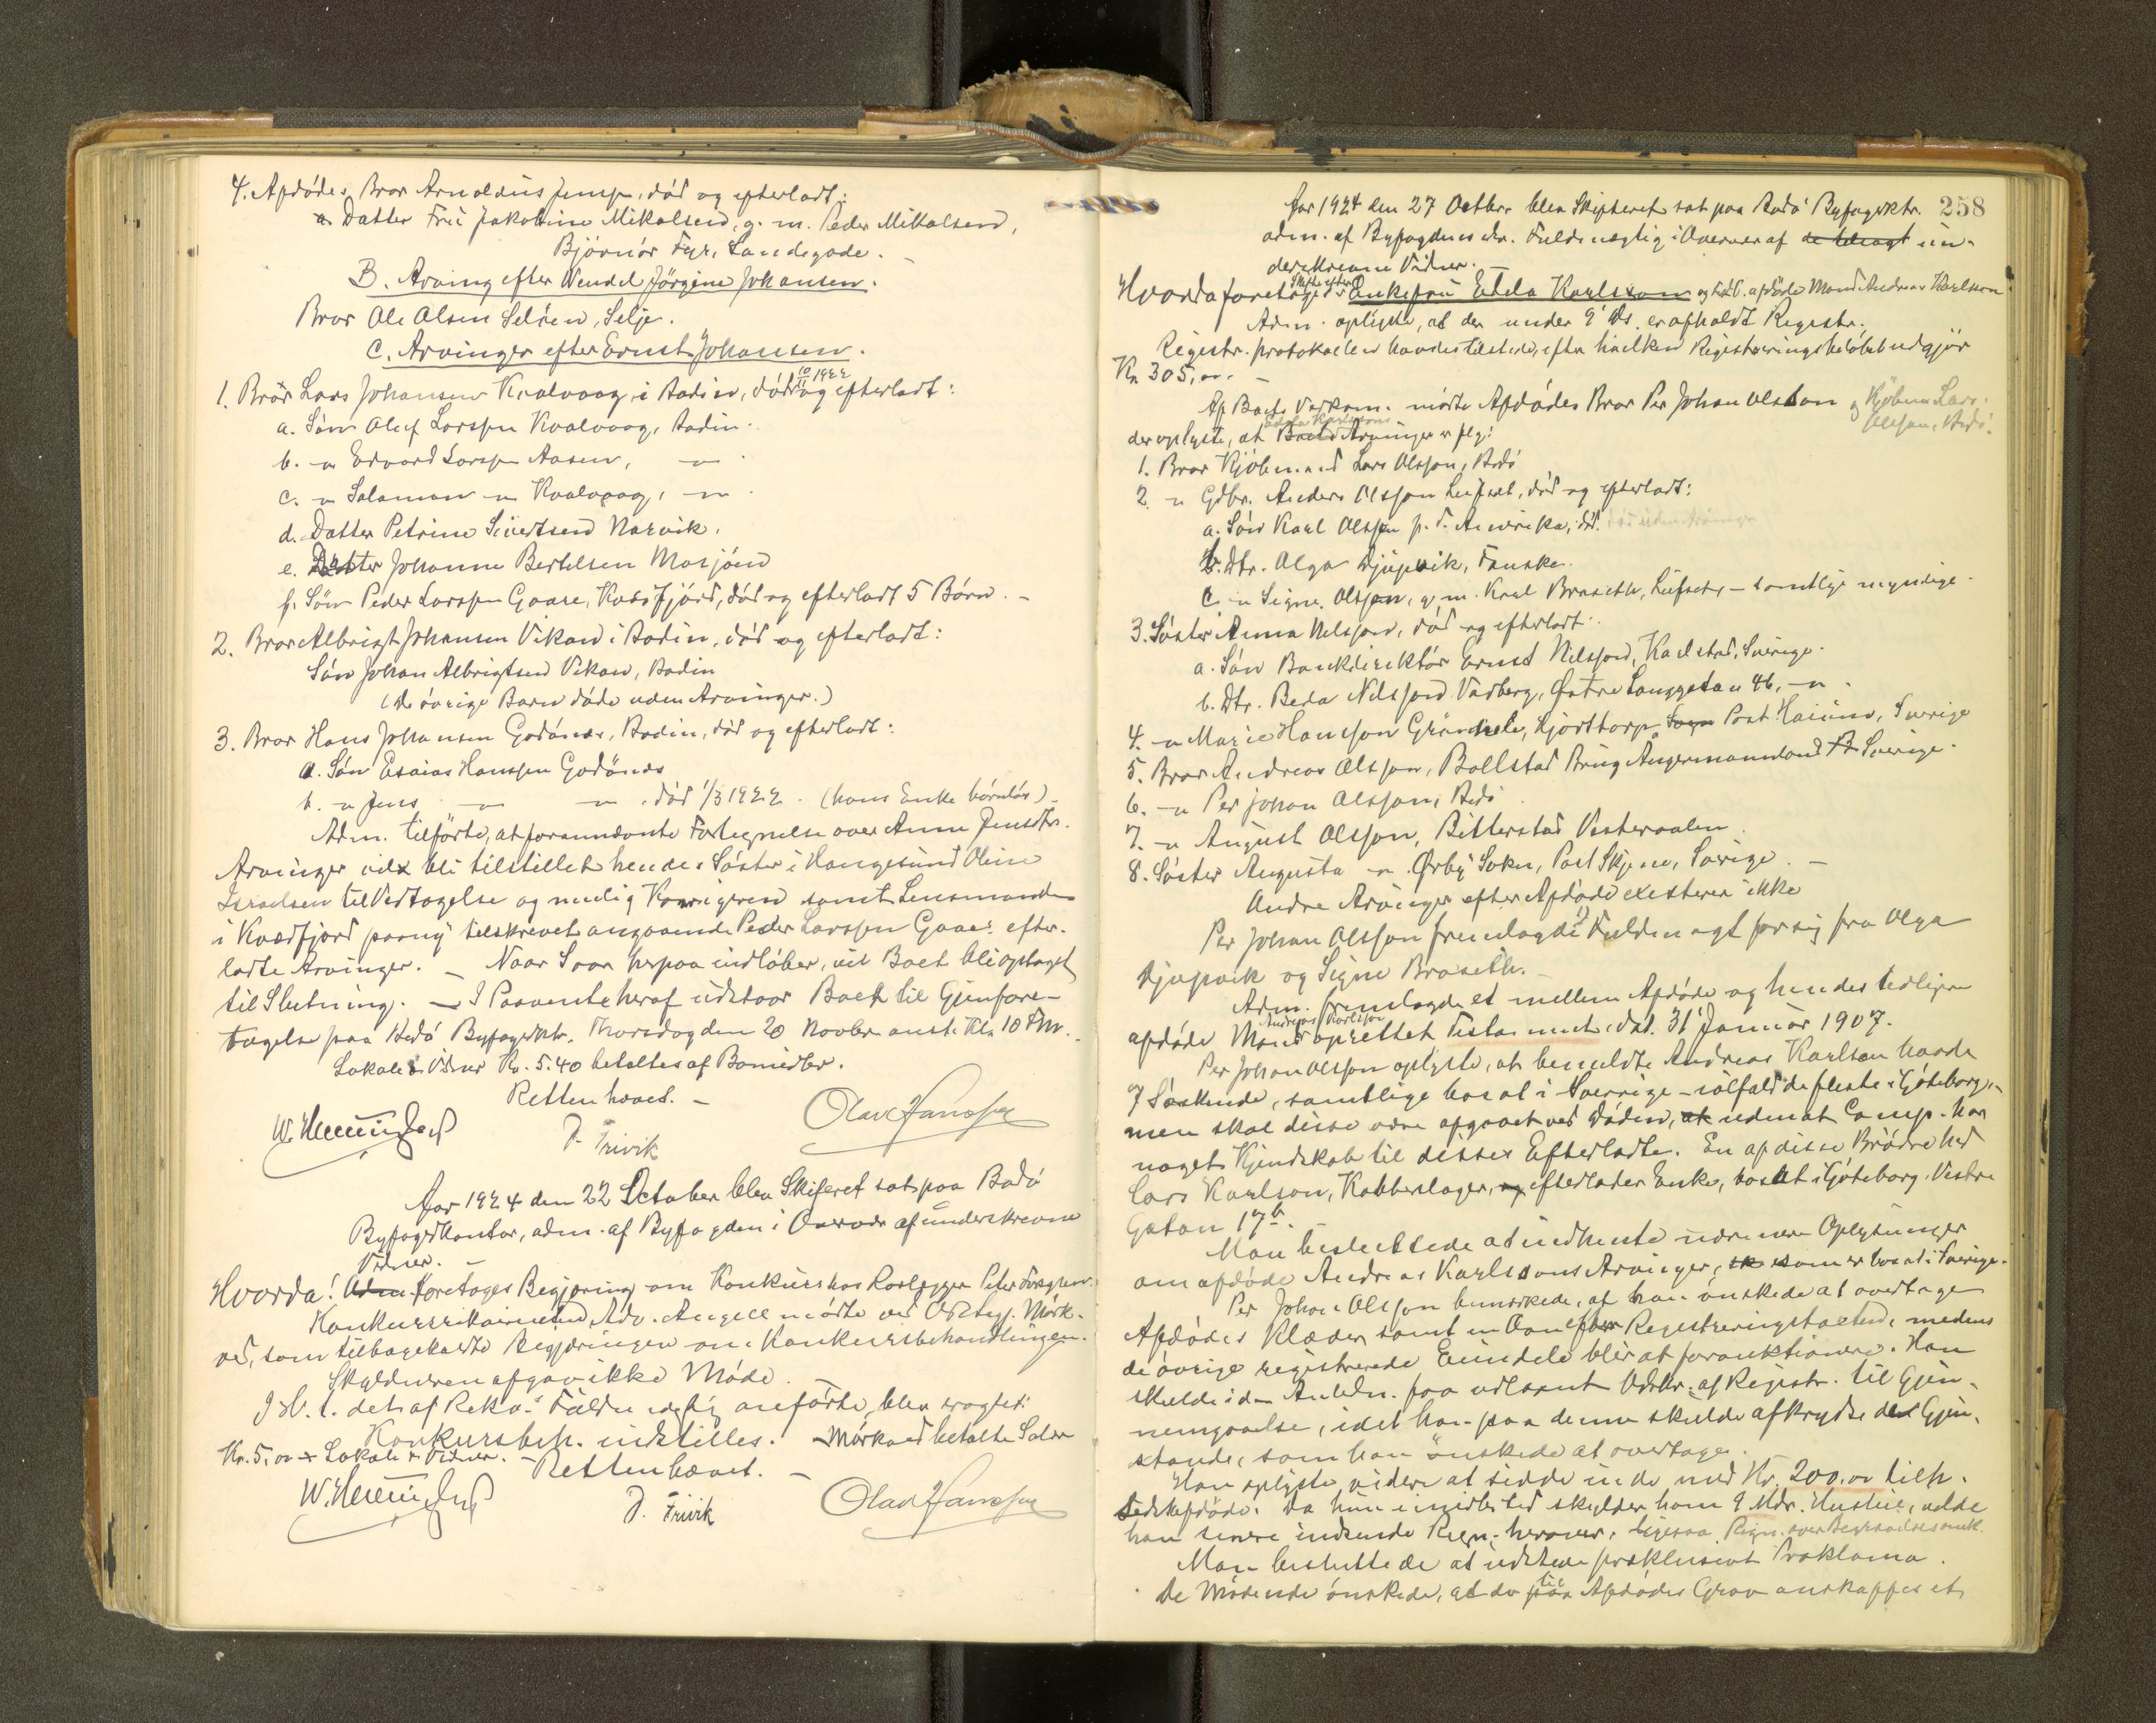 4. Afdødes Bror Arnoldus Jensen, død og efterladt:
a. Datter Fru Jakobine Mikalsen, g. m. Peder Mikalsen,
Bjørnør Fyr, Landegode.
B. Arving efter Wendel Jörgine Johansen.
Bror Ole Olsen Selöen, Selje.
C. Arvinger efter Ernst Johansen.
1. Bror Lars Johansen Kvalvaag i Bodin, död 10/11 1922 og efterladt:
a. Sön Oluf Larssen Kvalvaag, Bodin.
b. -"- Edvard Larssen Aasen, -"-
c. -"- Salamon -"- Kvalvaag, -"-
d. Datter Petrine Sivertsen Narvik.
e. Datter Johanne Bertelsen Mosjöen
f. Sön Peder Larssen Gaare, Kvæfjord, död og efterladt 5 Börn. -
2. Bror Albrigt Johansen Vikan i Bodin, död og efterladt:
Sön Johan Albrigtsen Vikan, Bodin
(De övrige Barn döde uden Arvinger.)
3. Bror Hans Johansen Godönes, Bodin, död og efterladt:
a. Sön Esaias Hanssen Godönes
b. -"- Jens -"- -"- , död 1/3 1922. (hans Enke börnlös)
Adm. tilförte, at forannævnte Fortegnelse over Anne Jensdtr.
Arvinger vil bli tilstillet hendes Söster i Haugesund Oline
Israelsen til Vedtagelse og mulig Korrigeren samt Lensmanden
i Kvædfjord paany tilskrevet angaaende Peder Larssen Gaares efter-
ladte Arvinger. - Naar Svar herpaa indlöber, vil Boet bli optaget
til Slutning. - I Paavente heraf udstaar Boet til Gjenfore-
tagelse paa Bodö Byfogedktr. Thorsdag den 20 Novbr anst. Kl. 10 Fm.
Lokale & Vidner Kr. 5.40 betaltes af Bomidler.
Retten hævet. -
J. Frivik
Olav Hanssen
Aar 1924 den 22 October blev Skifteret sat paa Bodö
Byfogedkontor, adm. af Byfogden i Overvær af underskrevne
Vidner. -
Hvorda! Adm. foretoges Begjæring om Konkurs hos Peter
Konkursrekvirenten Adv. Angell mödte ved O.r.sagf. Mörk-
ved, som tilbagekaldte Begjæringen om Konkursbehandlingen.
Skyldneren afgav ikke Möde.
I H. t. det af Rekv.s Fuldmægtig anförte, blev eragtet:
Konkursbeh. indstilles. - Mörkved betalte Salær
Kr. 5.00 + Lokale & Vidner. - Retten hævet. -
J. Frivik
Olav Hanssen
258
Aar 1924 den 27 Octbr. blev Skifteret sat paa Bodö Byfogedktr.
adm. af Byfogdens edsv. Fuldmægtig i Overvær af de tilvagt un-
derskrevne Vidner. -
Hvorda foretoges Skifte efter Enkefru Edela Karlsson og tidl. afdöde Mand Andreas Karlsson
Adm. oplyste, at der under 9 ds. er afholdt Registr.
Registr. protokollen havdes tilstede, efter hvilken Registreringsbelöbet udgjör
Kr. 305.00. -
Af Boets Vedkom. mödte Afdödes Bror Per Johan Olsson og Kjöbm. Lars
Olssen, Bodö.
der oplyste, at Boets Edela Karlssons Arvinger er flg:
1. Bror Kjöbmand Lars Olsson, Bodö
2. -"- Gdbr. Anders Olsson Leifset, död og efterladt:
a. Sön Karl Olsson p. t. Amerika, död. död uden Arvinger
b. Dtr. Olga Djupvik, Fauske.
c. -"- Signe Olsson, g. m. Karl Braseth, Leifset, - samtlige myndige.
3. Söster Anna Nelsson, död og efterladt:
a. Sön Bankdirektör Ernst Nelsson, Karlstad, Sverige.
b. Dtr. Beda Nelsson Varberg, Østre Langgatan 46, -"-
4. -"- Marie Hansson Grön, Hjorttorp, Sogn Post Haium, Sverige
5. Bror Andreas Olsson, Bollstad Brug Angermannland Sverige.
6. -"- Per Johan Olsson, Bodö
7. -"- August Olsson, Bitterstad Vesteraalen
8. Söster Augusta -"- Ørby Sokn, Post Skene, Sverige. -
Andre Arvinger efter Afdöde existerer ikke
Per Johan Olsson fremlagde Fuldmagt for sig fra Olga
Djupvik og Signe Braseth. -
Adm. fremlagde et mellem Afdöde og hendes tidligere
afdöde Mand Andreas Karlsson oprettet Testament, dat. 31 Januar 1907.
Per Johan Olsson oplyste, at bemeldte Andreas Karlsson havde
7 Söskende, samtlige bosat i Sverrige - ialfald de fleste i Göteborg, -
men skal disse være afgaaet ved Döden, at uden at Comp. har
noget Kjendskab til disses Efterladte. En af disse Brödre hed
Lars Karlson, Kobberslager, og efterlader Enke, bosat i Göteborg, Vestre
Gatan 17 b.
Man besluttede at indhente nærmere Oplysninger
om afdöde Andreas Karlssons Arvinger, som er bosat i Sverige.
Per Johan Olsson bemærkede, at han önskede at overtage
Afdödes Klæder samt en Ovn efter Registreringstaksten, medens
de övrige registrerede Eiendele blir at forauktionere. Han
skulde i den Anledn. faa udlaant Udskr. af Registr. til Gjen-
nemgaaelse, idet han paa denne skulde afkrydse de Gjen-
stande, som han önskede at overtage.
Han oplyste videre at sidde inde med Kr. 200.00 tilh.
Afdöde. Da hun imidlertid skylder ham 9 Mdr. Husleie, vilde
han senere indsende Regn. herover, ligesaa Regn. over Begravelsesomk.
Man besluttede at udstede præklusivt Proklama.
De Mödende önskede, at der paa til Afdödes Grav anskaffes et